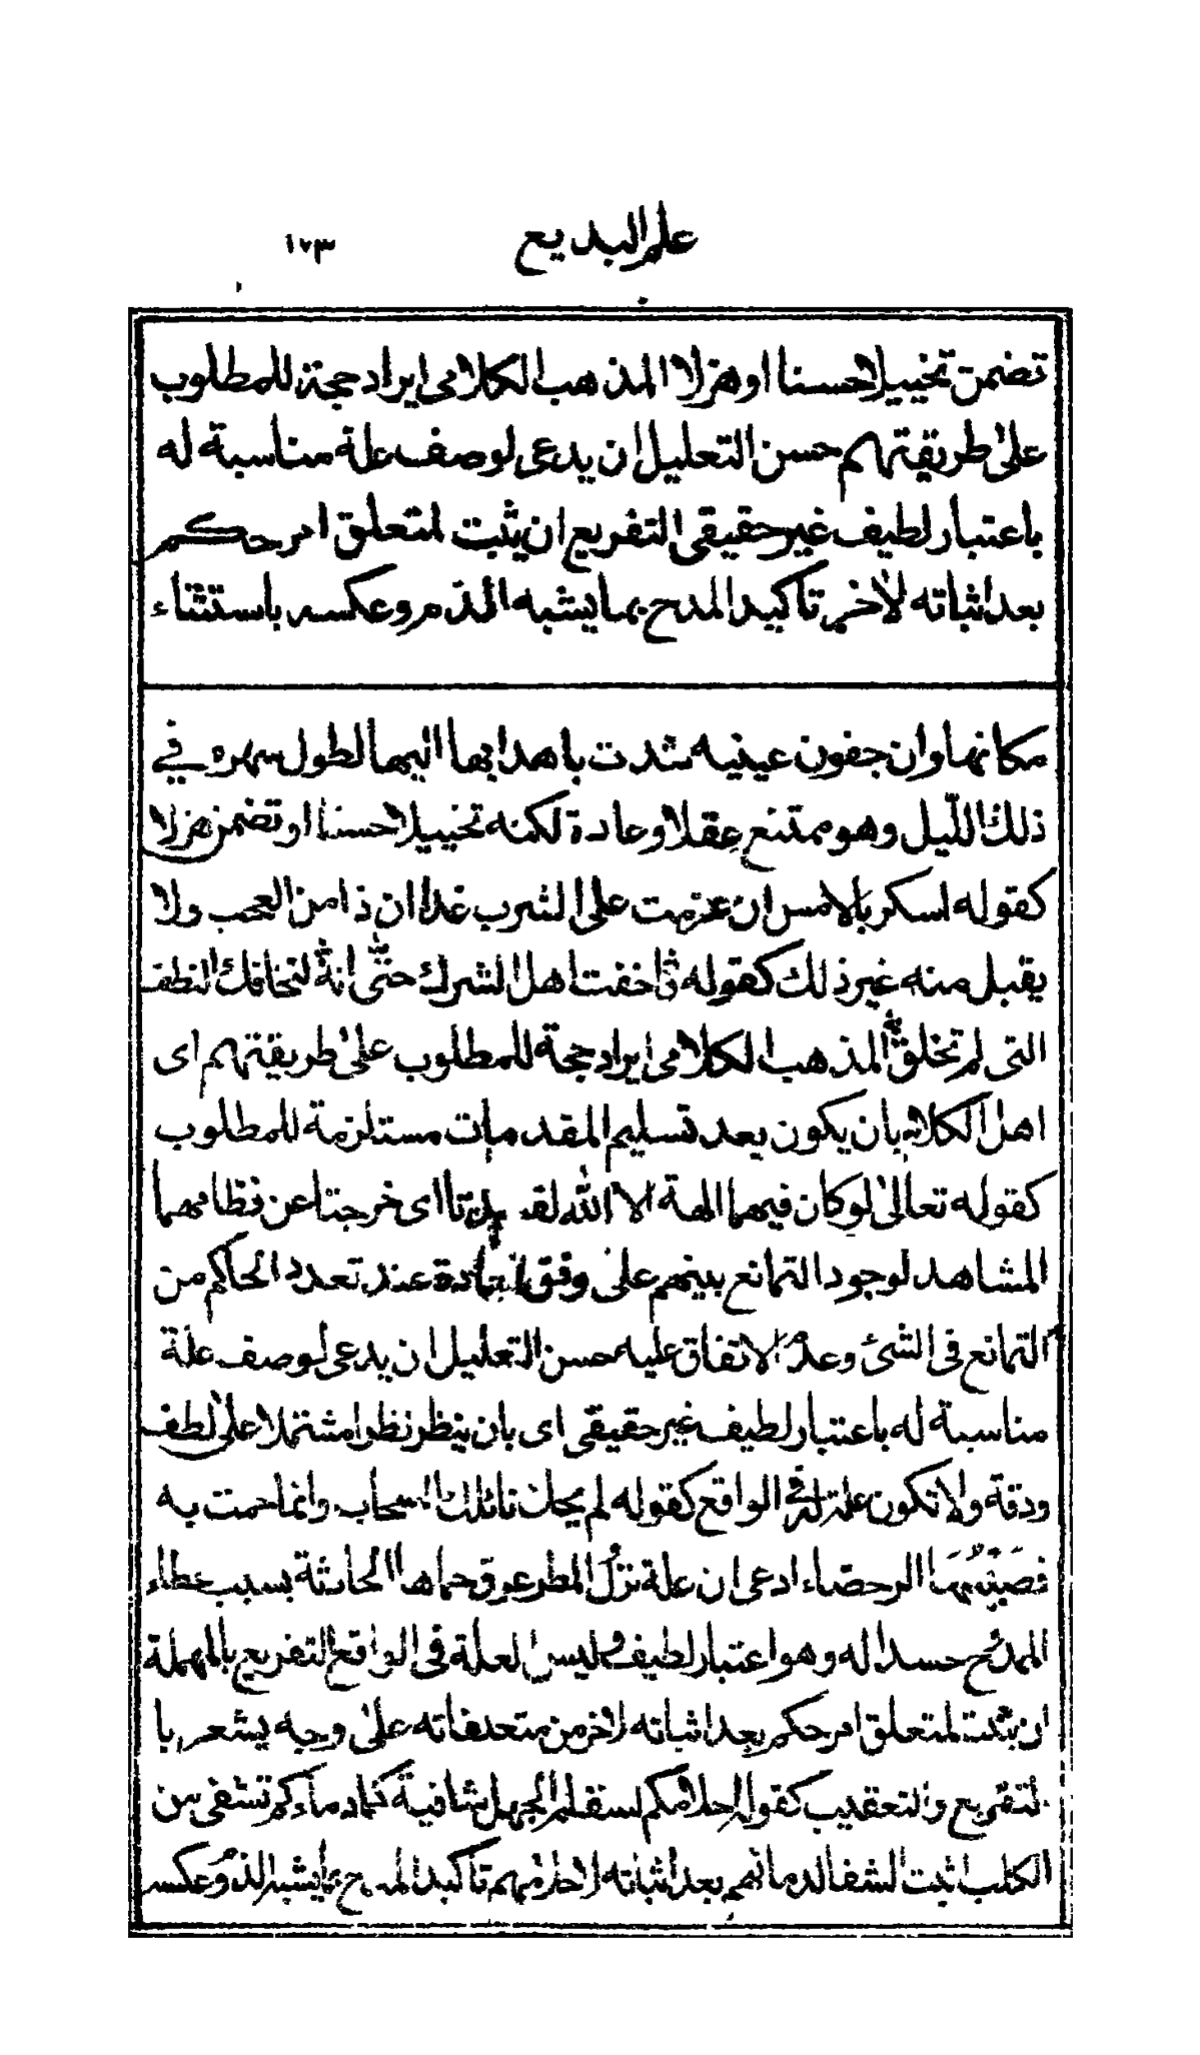 علم البديع ١٧٣
تضمن تخييلا حسنا او هزلا المذهب الكلامي ايراد حجة للمطلوب
على طريقتهم حسن التعليل ان يدعى لوصف علة مناسبة له
باعتبار لطيف غير حقيقي التفريع ان يثبت لمتعلق امر حكم
بعد اثباته لاخر تاكيد المدح بما يشبه الذم وعكسه باستثناء
مكانها وان جفون عينيه شدت باهدابها اليها لطول سهره في
ذلك الليل وهو ممتنع عقلا وعادة لكنه تخييلا حسنا او تضمن هزلا
كقوله اسكر بالامس ان عزمت على الشرب غدا ان ذا من العجب ولا
يقبل منه غير ذلك كقوله واخفت اهل الشرك حتى انه لتخافك النطف
التى لم تخلق المذهب الكلامى ايراد حجة للمطلوب على طريقتهم اى
اهل الكلام بان يكون بعد تسليم المقدمات مستلزمة للمطلوب
كقوله تعالى لو كان فيهما الهة الا الله لفسدتا اى خرجتا عن نظامهما
المشاهد لوجود التمانع بينهم على وفق العادة عند تعدد الحاكم من
التمانع فى الشئ وعدم الاتفاق عليه حسن التعليل ان يدعى لوصف علة
مناسبة له باعتبار لطيف غير حقيقى اى بان ينظر نظرا مشتملا على لطف
ودقة ولا تكون علة له فى الواقع كقوله لم يحك نائلك السحاب وانما حمت به
فصبيبها الرحضاء ادعى ان علة نزل المطر عرق حماها الحادثة بسبب عطاء
الممدوح حسدا له وهو اعتبار لطيف وليس العلة فى الواقع التفريع بالمهملة
ان يثبت لمتعلق امر حكم بعد اثباته لاخر من متعلقاته على وجه يشعر با
لتفريع والتعقيب كقوله احلامكم لسقام الجهل شافية كما دماءكم تشفى من
الكلب اثبت الشفا لدمائهم بعد اثباته لاحلامهم تاكيد المدح بما يشبه الذم وعكسه